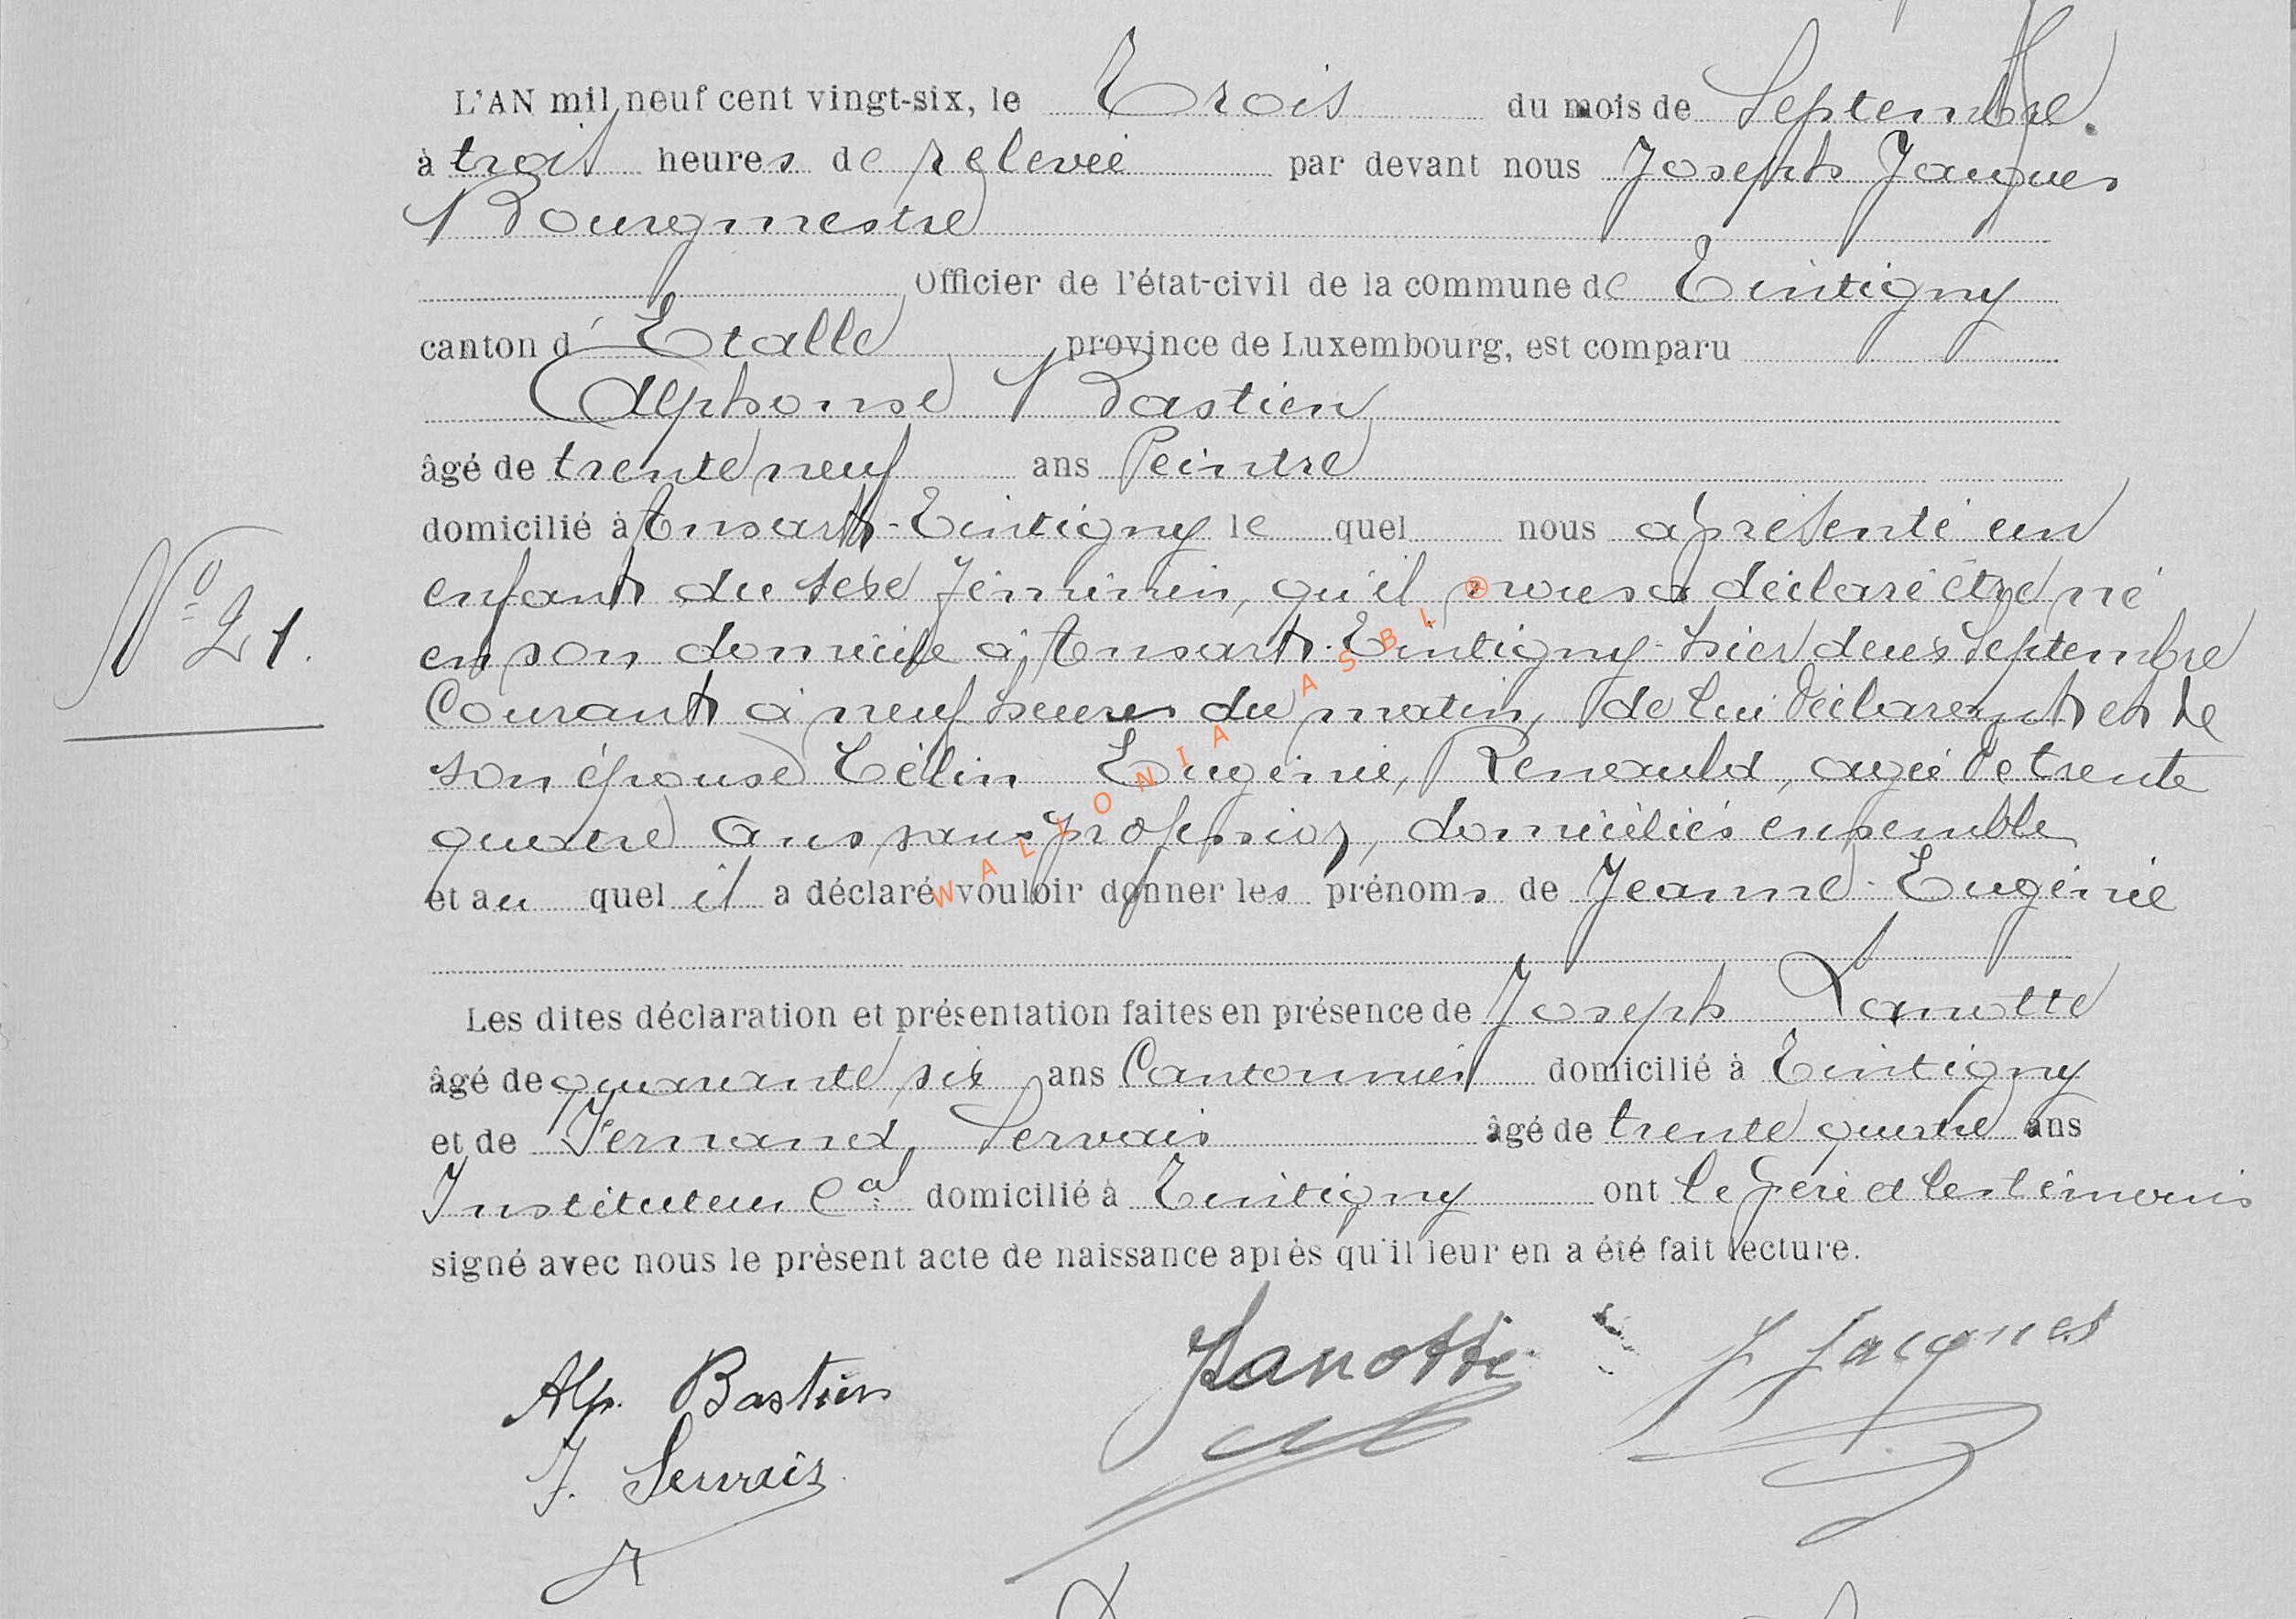 L'AN mil neuf cent vingt-six, le Trois du mois de Septembre
à trois heures de relevée par devant nous Joseph Jacques
Bourgmestre
Officier de l'état-civil de la commune de Tintigny
canton d'Etalle province de Luxembourg, est comparu
Alphonse Bastien
âgé de trente neuf ans Peintre
domicilié à Ansart-Tintigny le quel nous a présenté un
enfant du sexe féminin, qu'il nous a déclaré être né
N° 21.
en son domicile à Ansart-Tintigny hier deux Septembre
Courant à neuf heures du matin, de lui déclarant et de
son épouse Célin Eugénie, Renauld, agée de trente
quatre ans sans profession, domiciliés ensemble
et au quel il a déclaré vouloir donner les prénoms de Jeanne-Eugénie
Les dites déclaration et présentation faites en présence de Joseph Lanotte
âgé de quarante six ans Cantonnier domicilié à Tintigny
et de Fernand Servais âgé de trente quatre ans
Instituteur Cal domicilié à Tintigny ont le père et les témoins
signé avec nous le présent acte de naissance après qu'il leur en a été fait lecture.
Alp. Bastien
Lanotte
J Jacques
F. Servais
WALLONIA ASBL ®